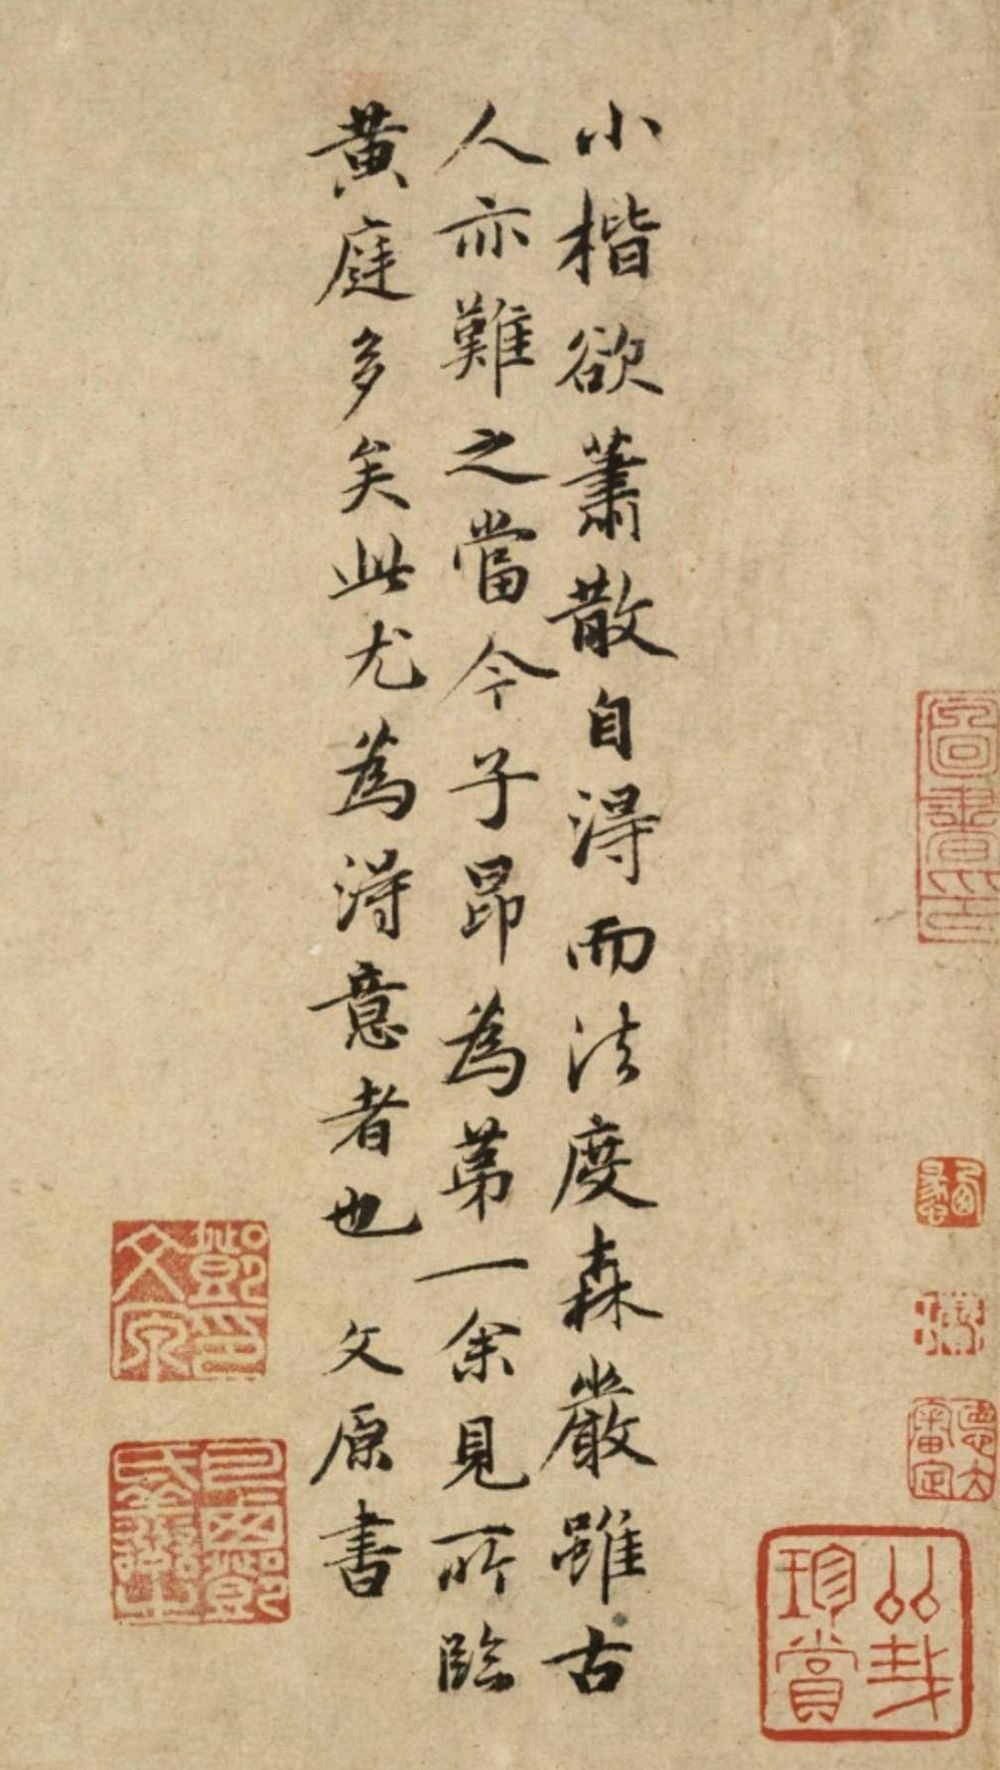 小楷欲蕭散自得而法度森嚴雖古
人亦難之當今子昂為第一余見所臨
黄庭多矣此尤為得意者也 文原書
圖書印
鄧印文原
珍賞